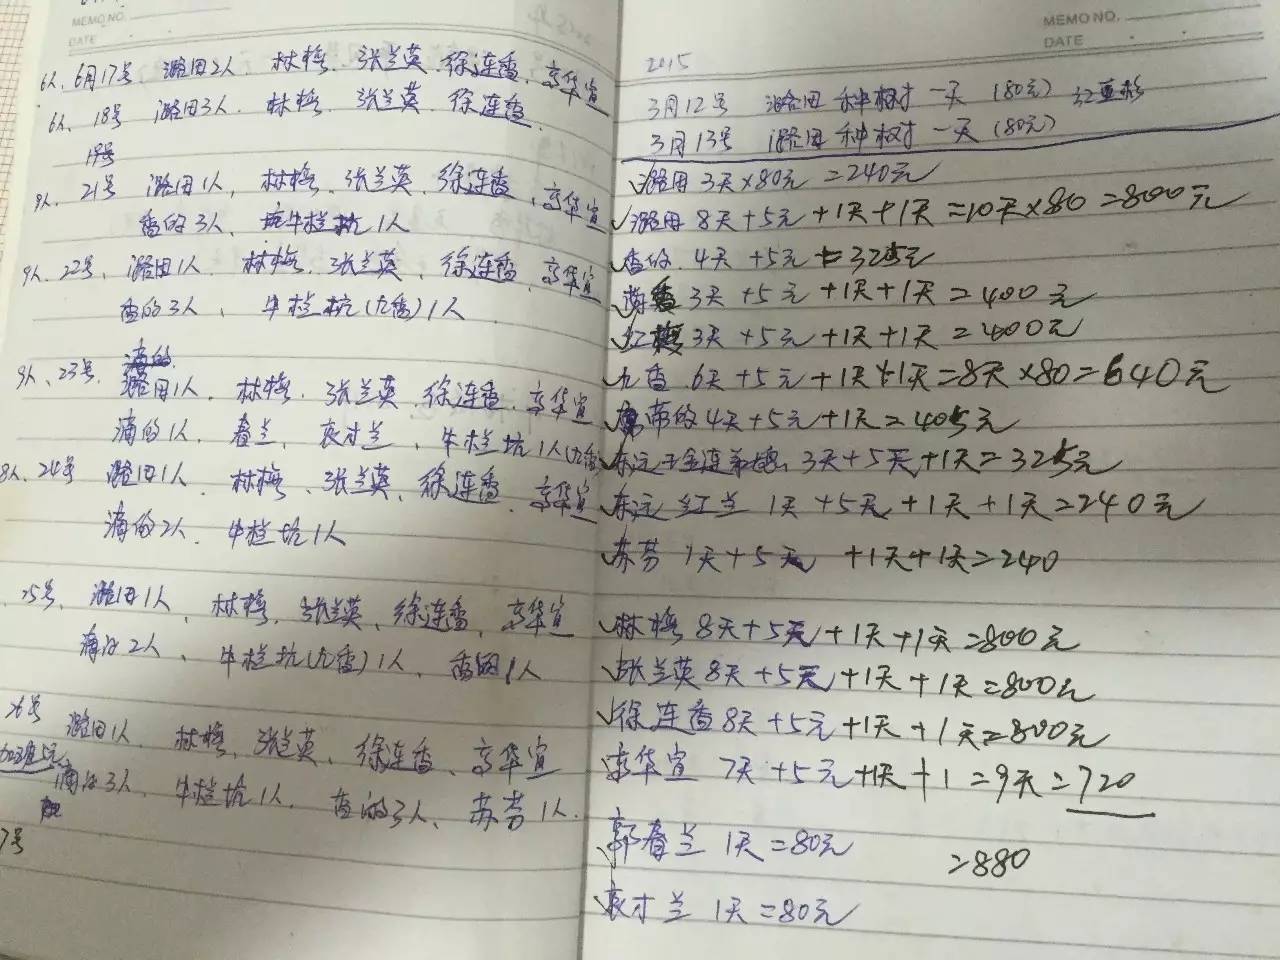 MEMO NO.
DATE
6人、6月17号 潞田2人、林梅、张兰英、徐连香、高华宣
6人、18号 潞田3人、林梅、张兰英、徐连香
19号
9人、21号 潞田1人、林梅、张兰英、徐连香、高华宣
香的3人、牛栏坑1人
9人、22号、潞田1人、林梅、张兰英、徐连香、高华宣
香的3人、牛栏坑(九香)1人
9人、23号、
潞田1人、林梅、张兰英、徐连香、高华宣
满的1人、春兰、袁才兰、牛栏坑1人(九香)
8人、24号 潞田1人、林梅、张兰英、徐连香、高华宣
满的2人、牛栏坑1人
25号、潞田1人、林梅、张兰英、徐连香、高华宣
满的2人、牛栏坑(九香)1人、香的1人
26号 潞田1人、林梅、张兰英、徐连香、高华宣
5元 满的3人、牛栏坑1人、香的3人、苏芬1人.
7号
MEMO NO.
DATE
2015
3月12号 潞田种树一天(80元) 红豆杉
3月13号 潞田种树一天(80元)
潞田3天×80元=240元
潞田8天+5元+1天+1天=10天×80=800元
香的.4天+5元=325元
香3天+5元+1天+1天=400元
红梅3天+5元+1天+1天=400元
九香6天+5元+1天+1天=8天×80=640元
带的4天+5元+1天=405元
东远 王金连弟媳、3天+5天+1天=325元
东远 红兰 1天+5天+1天+1天=240元
苏芬 1天+5元 +1天+1天=240
林梅8天+5天+1天+1天=800元
张兰英8天+5天+1天+1天=800元
徐连香8天+5元+1天+1天=800元
高华宣 7天+5元+1天+1=9天=720
郭春兰 1天=80元
=880
袁才兰 1天=80元